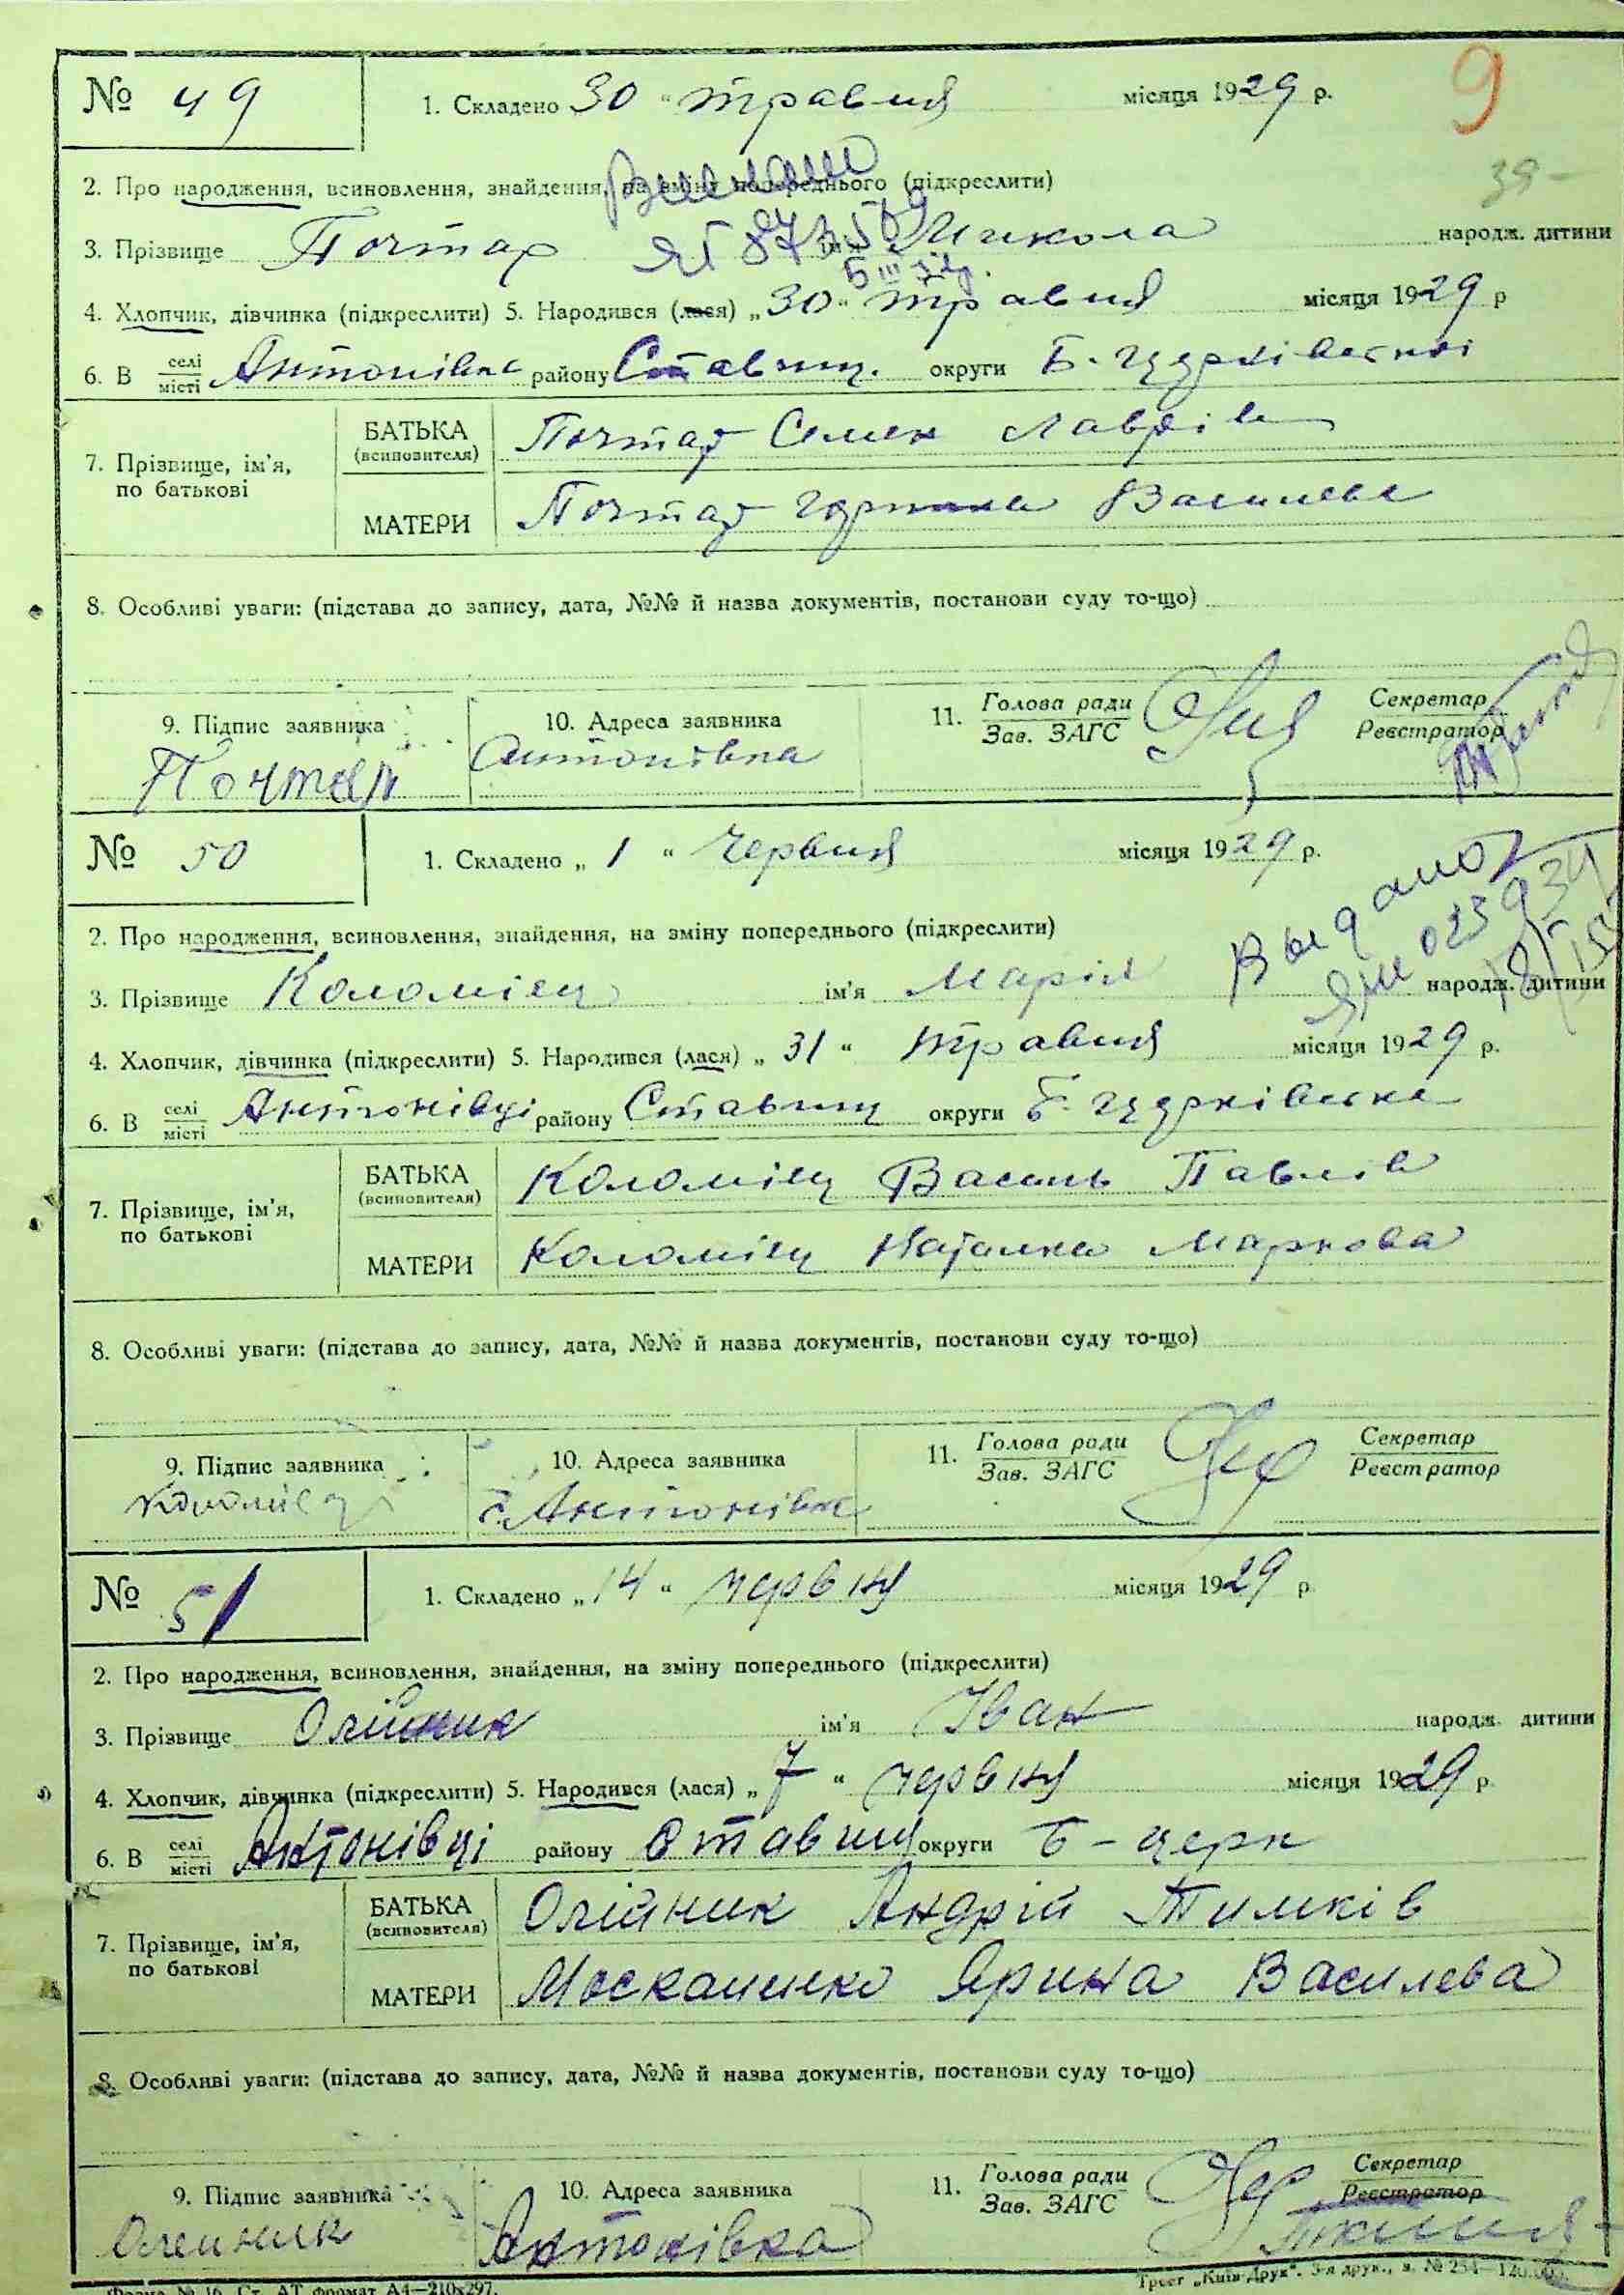 9
№ 49
1. Складено 30 " травня місяця 1929 р.
39-
2. Про народження, всиновлення, знайдення, на зміну попереднього (підкреслити)
3. Прізвище Почтар ім'я Микола народж. дитини
4. Хлопчик, дівчинка (підкреслити) 5. Народився (лася) „ 30 " травня місяця 1929 р
6. В селі/місті Антонівка району Ставищ. округи Б-Церківської
7. Прізвище, ім'я, по батькові
БАТЬКА (всиновителя) Почтар Семен Лаврів
МАТЕРИ Почтар Василева
8. Особливі уваги: (підстава до запису, дата, №№ й назва документів, постанови суду то-що)
9. Підпис заявника Почтар
10. Адреса заявника Антонівка
11. Голова ради / Зав. ЗАГС Секретар / Реєстратор
№ 50
1. Складено „ 1 " Червня місяця 1929 р.
Выдано
2. Про народження, всиновлення, знайдення, на зміну попереднього (підкреслити)
3. Прізвище Коломієц ім'я Марія народж. дитини
4. Хлопчик, дівчинка (підкреслити) 5. Народився (лася) „ 31 " травня місяця 1929 р.
6. В селі/місті Антонівці району Ставищ округи Б-Церківська
7. Прізвище, ім'я, по батькові
БАТЬКА (всиновителя) Коломієц Василь Павлів
МАТЕРИ Коломієц Наталка Маркова
8. Особливі уваги: (підстава до запису, дата, №№ й назва документів, постанови суду то-що)
9. Підпис заявника Коломієц
10. Адреса заявника с. Антонівка
11. Голова ради / Зав. ЗАГС Секретар / Реєстратор
№ 51
1. Складено „ 14 " червня місяця 1929 р
2. Про народження, всиновлення, знайдення, на зміну попереднього (підкреслити)
3. Прізвище Олійник ім'я Іван народж. дитини
4. Хлопчик, дівчинка (підкреслити) 5. Народився (лася) „ 7 " червня місяця 1929 р
6. В селі/місті Антонівці району Ставищ округи Б-церк
7. Прізвище, ім'я, по батькові
БАТЬКА (всиновителя) Олійник Андрій Тимків
МАТЕРИ Москаленко Ярина Василева
8. Особливі уваги: (підстава до запису, дата, №№ й назва документів, постанови суду то-що)
9. Підпис заявника Олейник
10. Адреса заявника Антонівка
11. Голова ради / Зав. ЗАГС Секретар / Реєстратор
Форма № 16. Ст. АТ формат А4—210х297.
Трест „Київ-Друк". 3-я друк., з. № 254